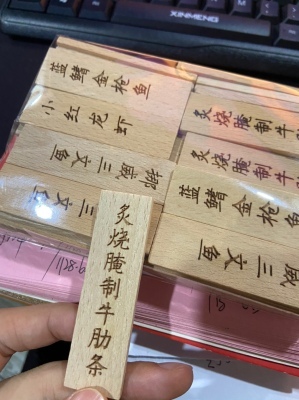 XINMENG
蓝鳍金枪鱼
小红龙虾
挪威三文鱼
炙烧腌制牛
炙烧腌制牛
蓝鳍金枪鱼
三文鱼
威三文鱼
炙烧腌制牛肋条